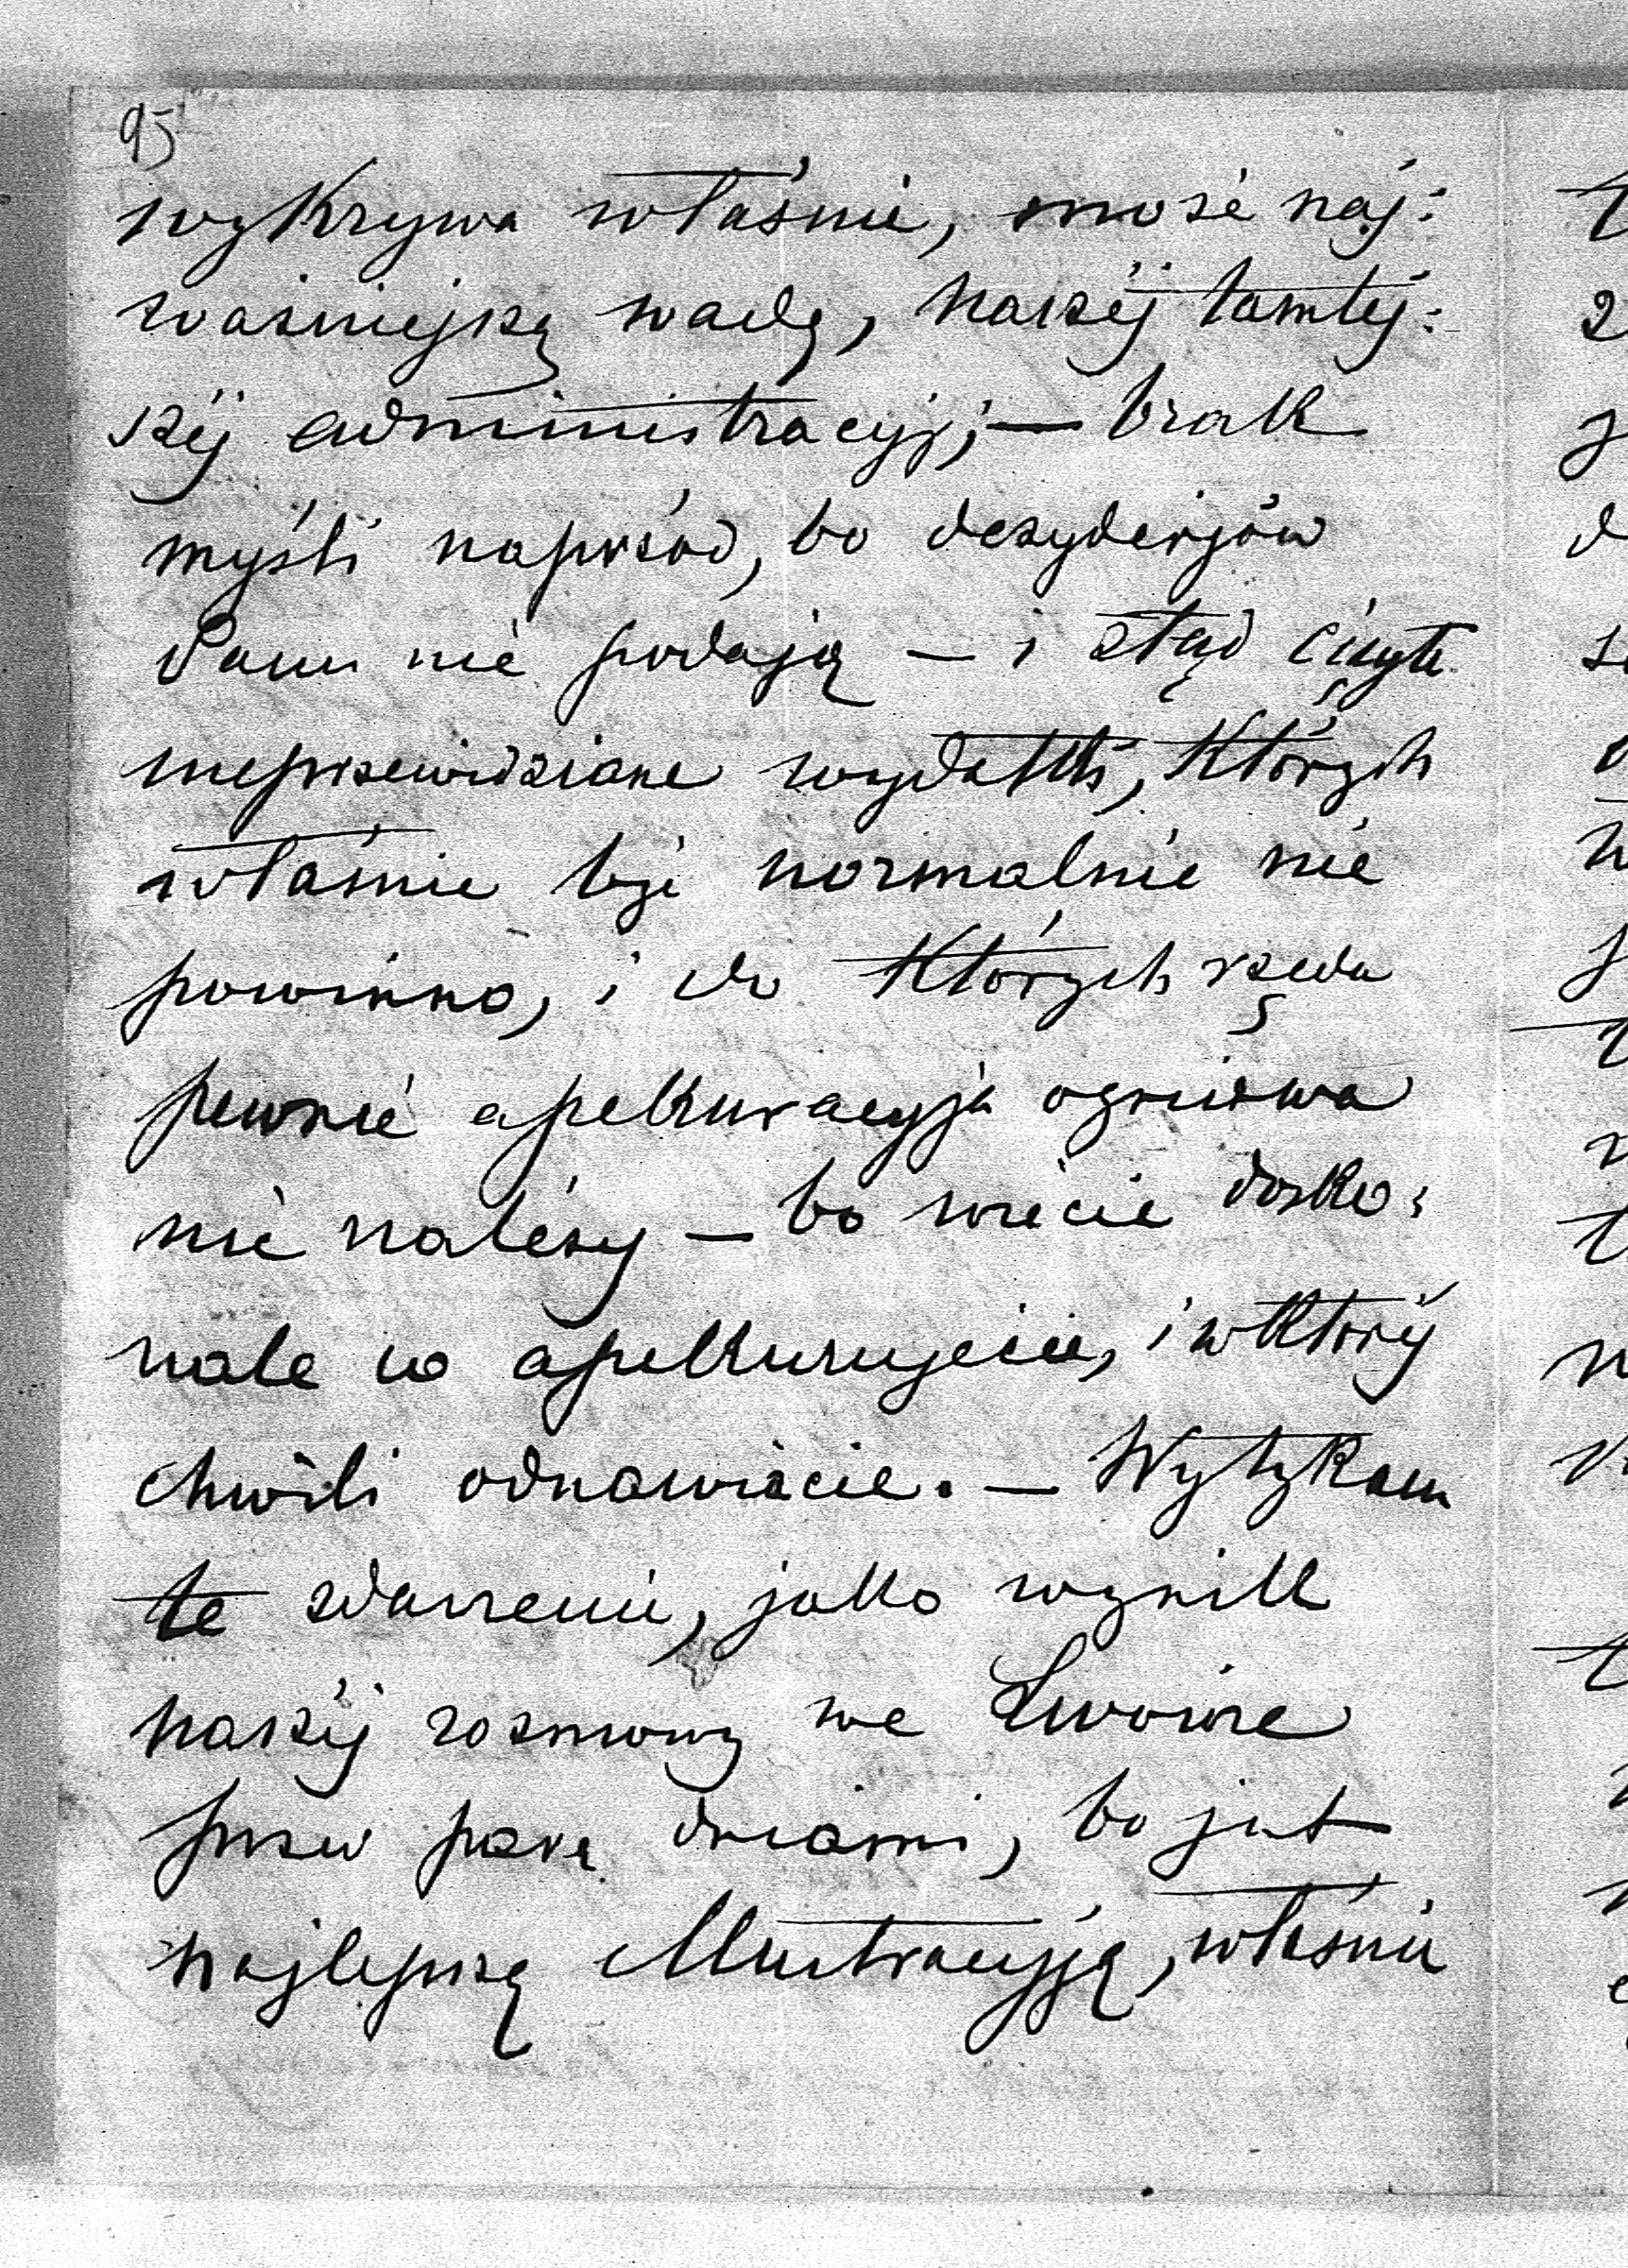 95
wykrywa właśnie, może naj:
ważniejszą wadę, naszéj tamtéj:
széj administracyji, — brak
myśli naprzód, bo dezyderjów
Panu nie podają — i ztąd ciągłe
nieprzewidziane wydatki, których
właśnie być normalnie nie
powinno, i do których rzędu
pewnie apelkuracyja ogniowa
nie należy — bo wiecie dosko:
nale co apelkurujecie, i w któréj
chwili odnawiacie. — Wytykam
te zdarzenie, jako wynik
naszéj rozmowy we Lwowie
przed parą dniami, bo jest
najlepszą illustracyją, właśnie